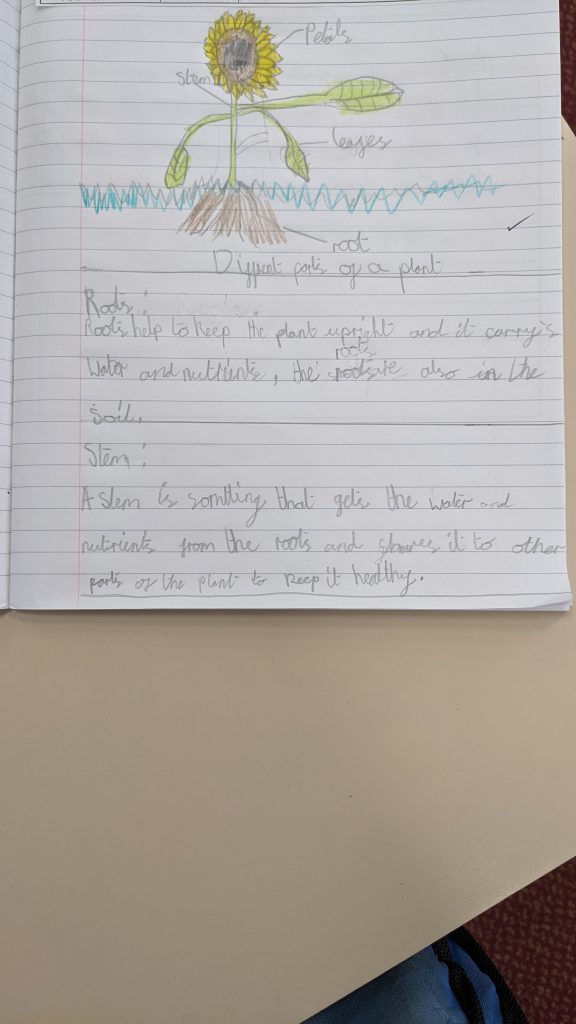 Petals
Stem
leafes
root
Diffrent parts of a plant
Roots:
Roots help to keep the plant upright and it carry's
roots
Water and nutrients, the rootsare also in the
Soil.
Stem:
A stem is somthing that gets the water and
nutirients from the roots and shares it to other
parts of the plant to keep it healthy.